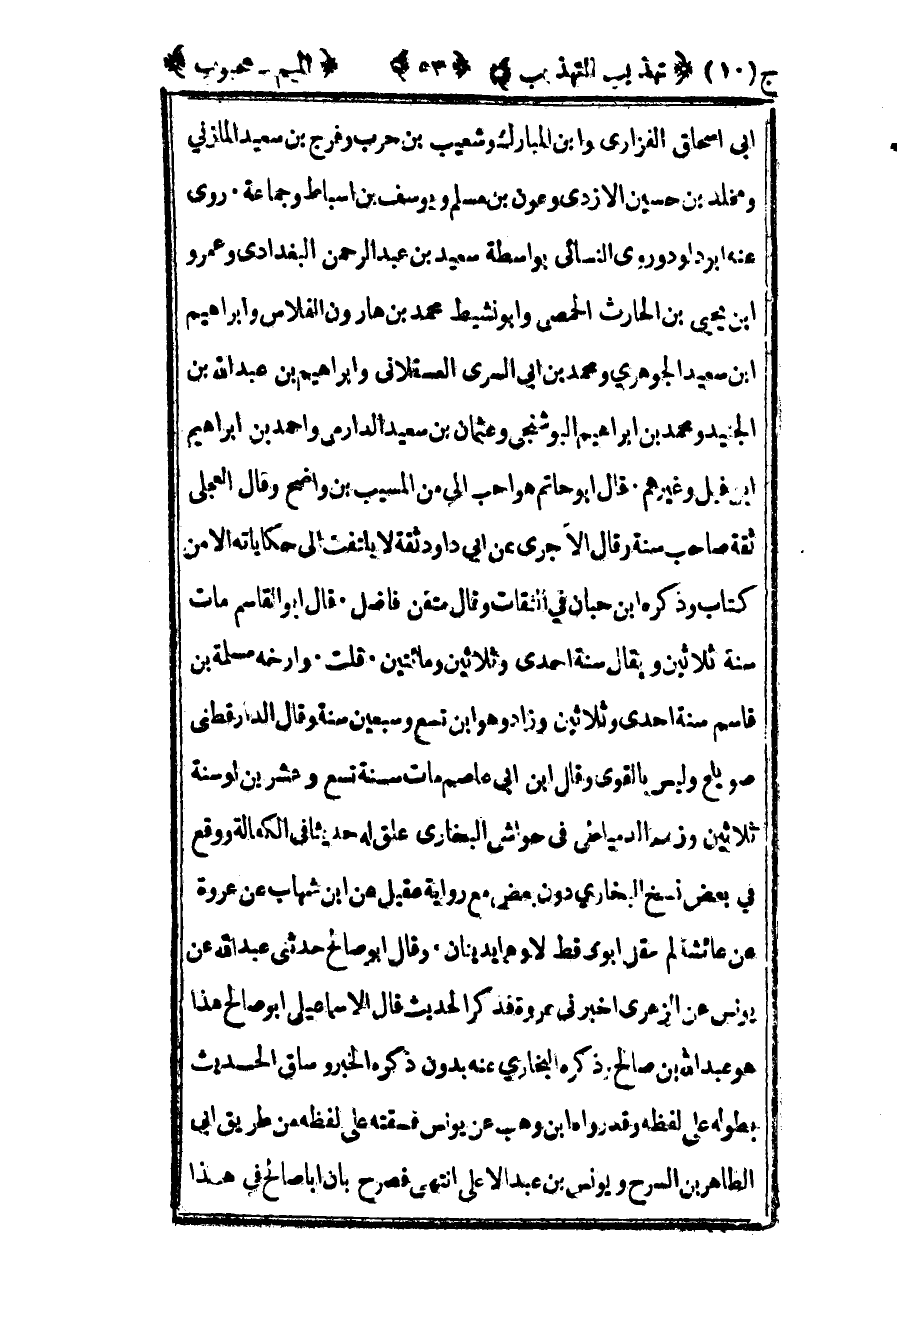 ج (١٠) ﴿ تهذيب التهذيب ﴾ ﴿ ٥٣ ﴾ ﴿ الميم - محبوب ﴾
ابى اسحاق الفزارى وابن المبارك وشعيب بن حرب وفرج بن سعيد المازني
ومخلد بن حسين الازدى وعون بن مسلم ويوسف بن اسباط وجماعة · روى
عنه ابوداود وروى النسائى بواسطة سعيد بن عبدالرحمن البغدادى وعمرو
ابن يحيى بن الحارث الحمصى وابو نشيط محمد بن هارون الفلاس وابراهيم
ابن سعيد الجوهري ومحمد بن ابي السرى العسقلانى وابراهيم بن عبدالله بن
الجنيد ومحمد بن ابراهيم البوشنجي وعثمان بن سعيد الدارمى واحمد بن ابراهيم
ابن فيل وغيرهم · قال ابو حاتم هو احب الي من المسيب بن واضح وقال العجلى
ثقة صاحب سنة وقال الآجرى عن ابي داود ثقة لا يلتفت الى حكاياته الا من
كتاب وذكره ابن حبان في الثقات وقال متقن فاضل · قال ابو القاسم مات
سنة ثلاثين ويقال سنة احدى وثلاثين ومائتين · قلت · وارخه مسلمة بن
قاسم سنة احدى وثلاثين وزاد وهو ابن تسع وسبعين سنة وقال الدارقطنى
صويلح وليس بالقوى وقال ابن ابي عاصم مات سنة تسع وعشرين او سنة
ثلاثين وزعم الدمياطى فى حواشى البخارى علق له حديثا فى الكفالة ووقع
في بعض نسخ البخاري دون بعض مع رواية عقيل عن ابن شهاب عن عروة
عن عائشة لم اعقل ابوى قط الا وهما يدينان · وقال ابو صالح حدثنى عبدالله عن
يونس عن الزهرى اخبرنى عروة فذكر الحديث قال الاسماعيلى ابو صالح هذا
هو عبدالله بن صالح ذكره البخاري عنه بدون ذكره الخبر وساق الحديث
بطوله على لفظه وقد رواه ابن وهب عن يونس فسقته على لفظه من طريق ابى
الطاهر بن السرح ويونس بن عبدالاعلى انتهى فصرح بان اباصالح في هذا